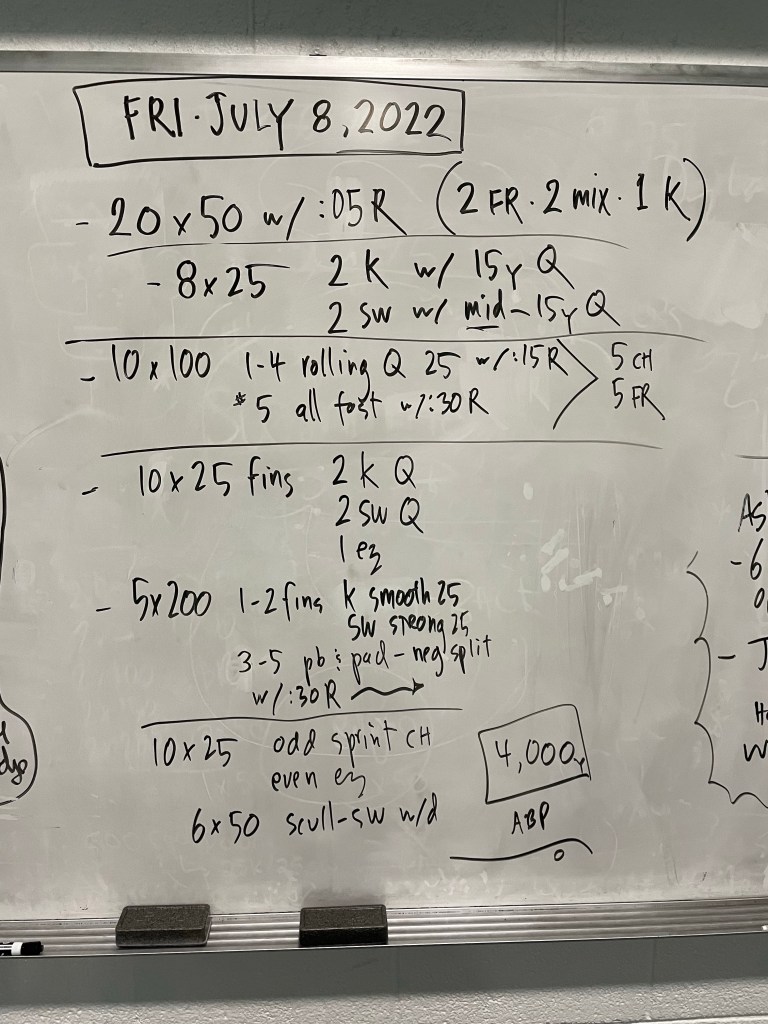 FRI. JULY 8, 2022
- 20 x 50 w/ :05 R (2 FR. 2 mix. 1 K)
- 8 x 25 2 K w/ 15y Q
2 SW w/ mid-15y Q
- 10 x 100 1-4 rolling Q 25 w/:15R > 5 CH
* 5 all fast w/:30R 5 FR
- 10 x 25 fins 2 K Q
2 SW Q
1 ez
- 5 x 200 1-2 fins K smooth 25
SW strong 25
3-5 pb & pad - neg split
w/:30R →
10 x 25 odd sprint CH
even ez
6 x 50 scull-SW w/d
4,000y
ABP
AS
-6
- J
W